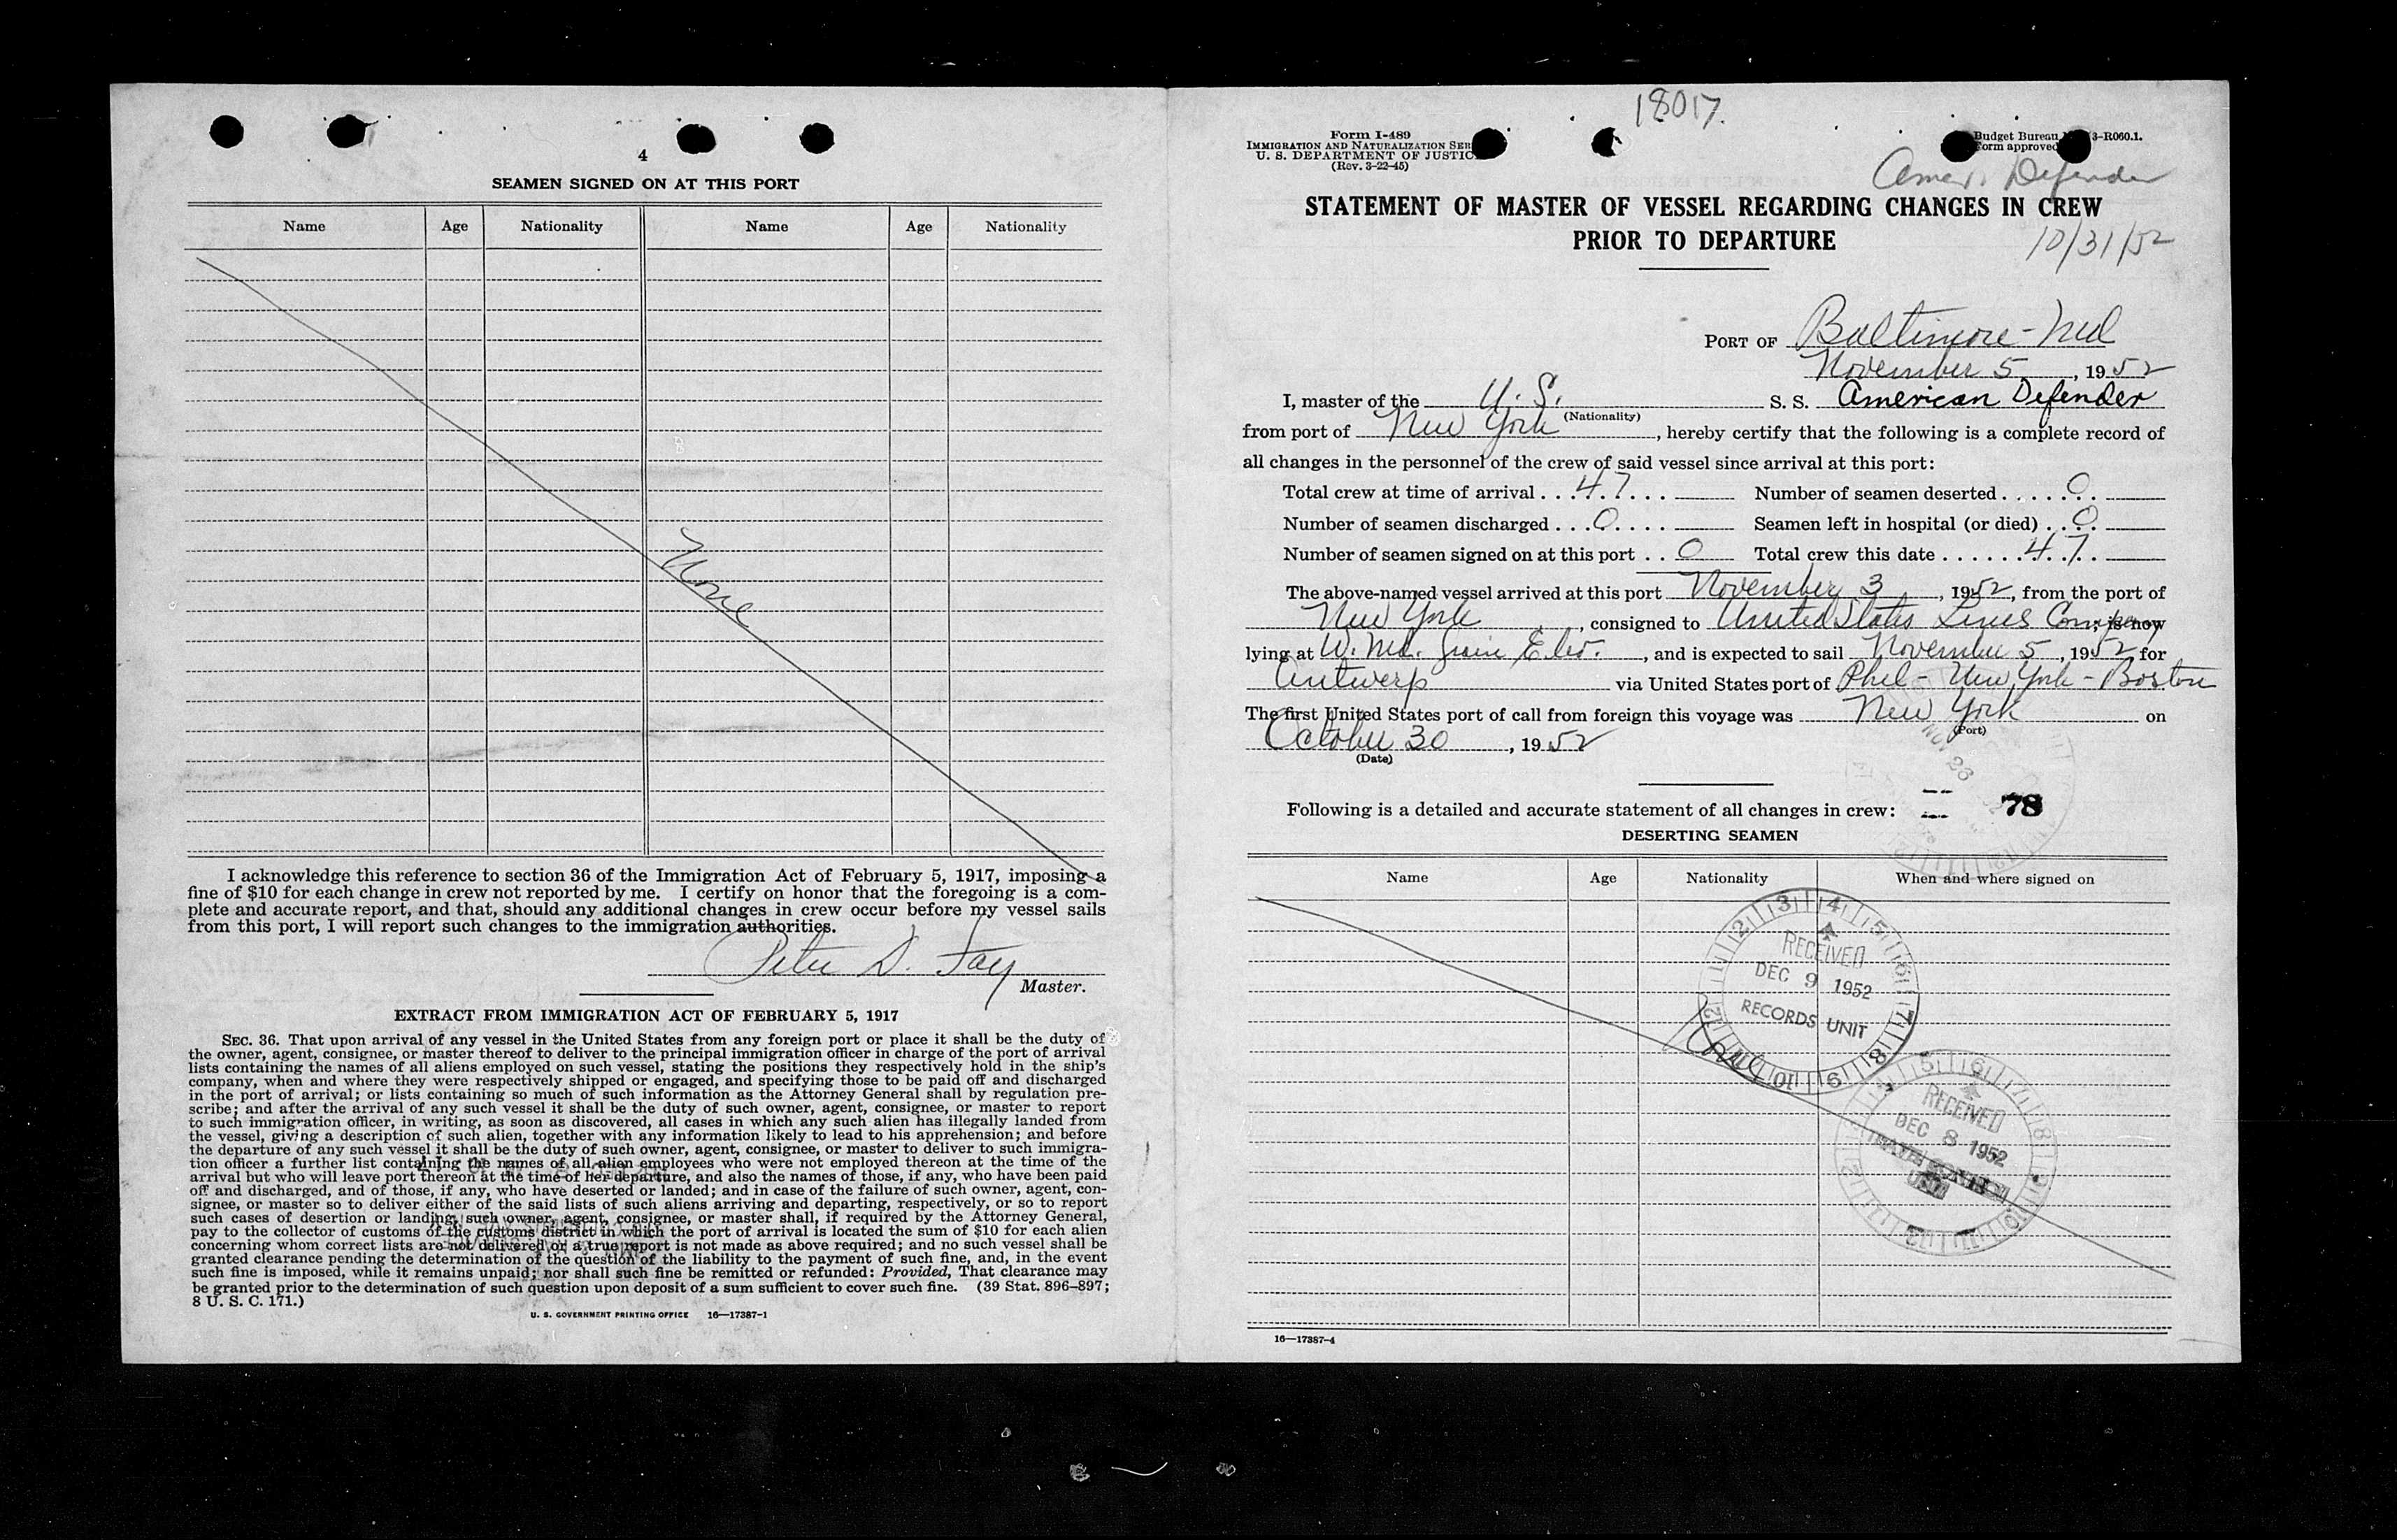 4
SEAMEN SIGNED ON AT THIS PORT
Name Age Nationality Name Age Nationality
None
I acknowledge this reference to section 36 of the Immigration Act of February 5, 1917, imposing a
fine of $10 for each change in crew not reported by me. I certify on honor that the foregoing is a com-
plete and accurate report, and that, should any additional changes in crew occur before my vessel sails
from this port, I will report such changes to the immigration authorities.
Peter D. Fay
Master.
EXTRACT FROM IMMIGRATION ACT OF FEBRUARY 5, 1917
SEC. 36. That upon arrival of any vessel in the United States from any foreign port or place it shall be the duty of
the owner, agent, consignee, or master thereof to deliver to the principal immigration officer in charge of the port of arrival
lists containing the names of all aliens employed on such vessel, stating the positions they respectively hold in the ship's
company, when and where they were respectively shipped or engaged, and specifying those to be paid off and discharged
in the port of arrival; or lists containing so much of such information as the Attorney General shall by regulation pre-
scribe; and after the arrival of any such vessel it shall be the duty of such owner, agent, consignee, or master to report
to such immigration officer, in writing, as soon as discovered, all cases in which any such alien has illegally landed from
the vessel, giving a description of such alien, together with any information likely to lead to his apprehension; and before
the departure of any such vessel it shall be the duty of such owner, agent, consignee, or master to deliver to such immigra-
tion officer a further list containing the names of all alien employees who were not employed thereon at the time of the
arrival but who will leave port thereon at the time of her departure, and also the names of those, if any, who have been paid
off and discharged, and of those, if any, who have deserted or landed; and in case of the failure of such owner, agent, con-
signee, or master so to deliver either of the said lists of such aliens arriving and departing, respectively, or so to report
such cases of desertion or landing, such owner, agent, consignee, or master shall, if required by the Attorney General,
pay to the collector of customs of the customs district in which the port of arrival is located the sum of $10 for each alien
concerning whom correct lists are not delivered or a true report is not made as above required; and no such vessel shall be
granted clearance pending the determination of the question of the liability to the payment of such fine, and, in the event
such fine is imposed, while it remains unpaid; nor shall such fine be remitted or refunded: Provided, That clearance may
be granted prior to the determination of such question upon deposit of a sum sufficient to cover such fine. (39 Stat. 896–897;
8 U. S. C. 171.)
U. S. GOVERNMENT PRINTING OFFICE 16—17387-1
18017.
Form I-489
IMMIGRATION AND NATURALIZATION SER
U. S. DEPARTMENT OF JUSTIC
(Rev. 3-22-45)
Budget Bureau 3-R060.1.
Form approved
Amer. Defender
STATEMENT OF MASTER OF VESSEL REGARDING CHANGES IN CREW
PRIOR TO DEPARTURE
10/31/52
PORT OF Baltimore - Md
November 5, 1952
I, master of the U. S. S. S. American Defender
(Nationality)
from port of New York, hereby certify that the following is a complete record of
all changes in the personnel of the crew of said vessel since arrival at this port:
Total crew at time of arrival . . . 47 . . . Number of seamen deserted . . . . . 0 . .
Number of seamen discharged . . . 0 . . . . Seamen left in hospital (or died) . . 0 . .
Number of seamen signed on at this port . . 0 Total crew this date . . . . . . 47 . .
The above-named vessel arrived at this port November 3, 1952, from the port of
New York, consigned to United States Lines Company, is now
lying at W. Md. Grain Elev., and is expected to sail November 5, 1952 for
Antwerp via United States port of Phil - New York - Boston
The first United States port of call from foreign this voyage was New York on
(Port)
October 30, 1952
(Date)
NOV 23
Following is a detailed and accurate statement of all changes in crew: 78
DESERTING SEAMEN
Name Age Nationality When and where signed on
RECEIVED
DEC 9 1952
RECORDS UNIT
RECEIVED
DEC 8 1952
16—17387-4